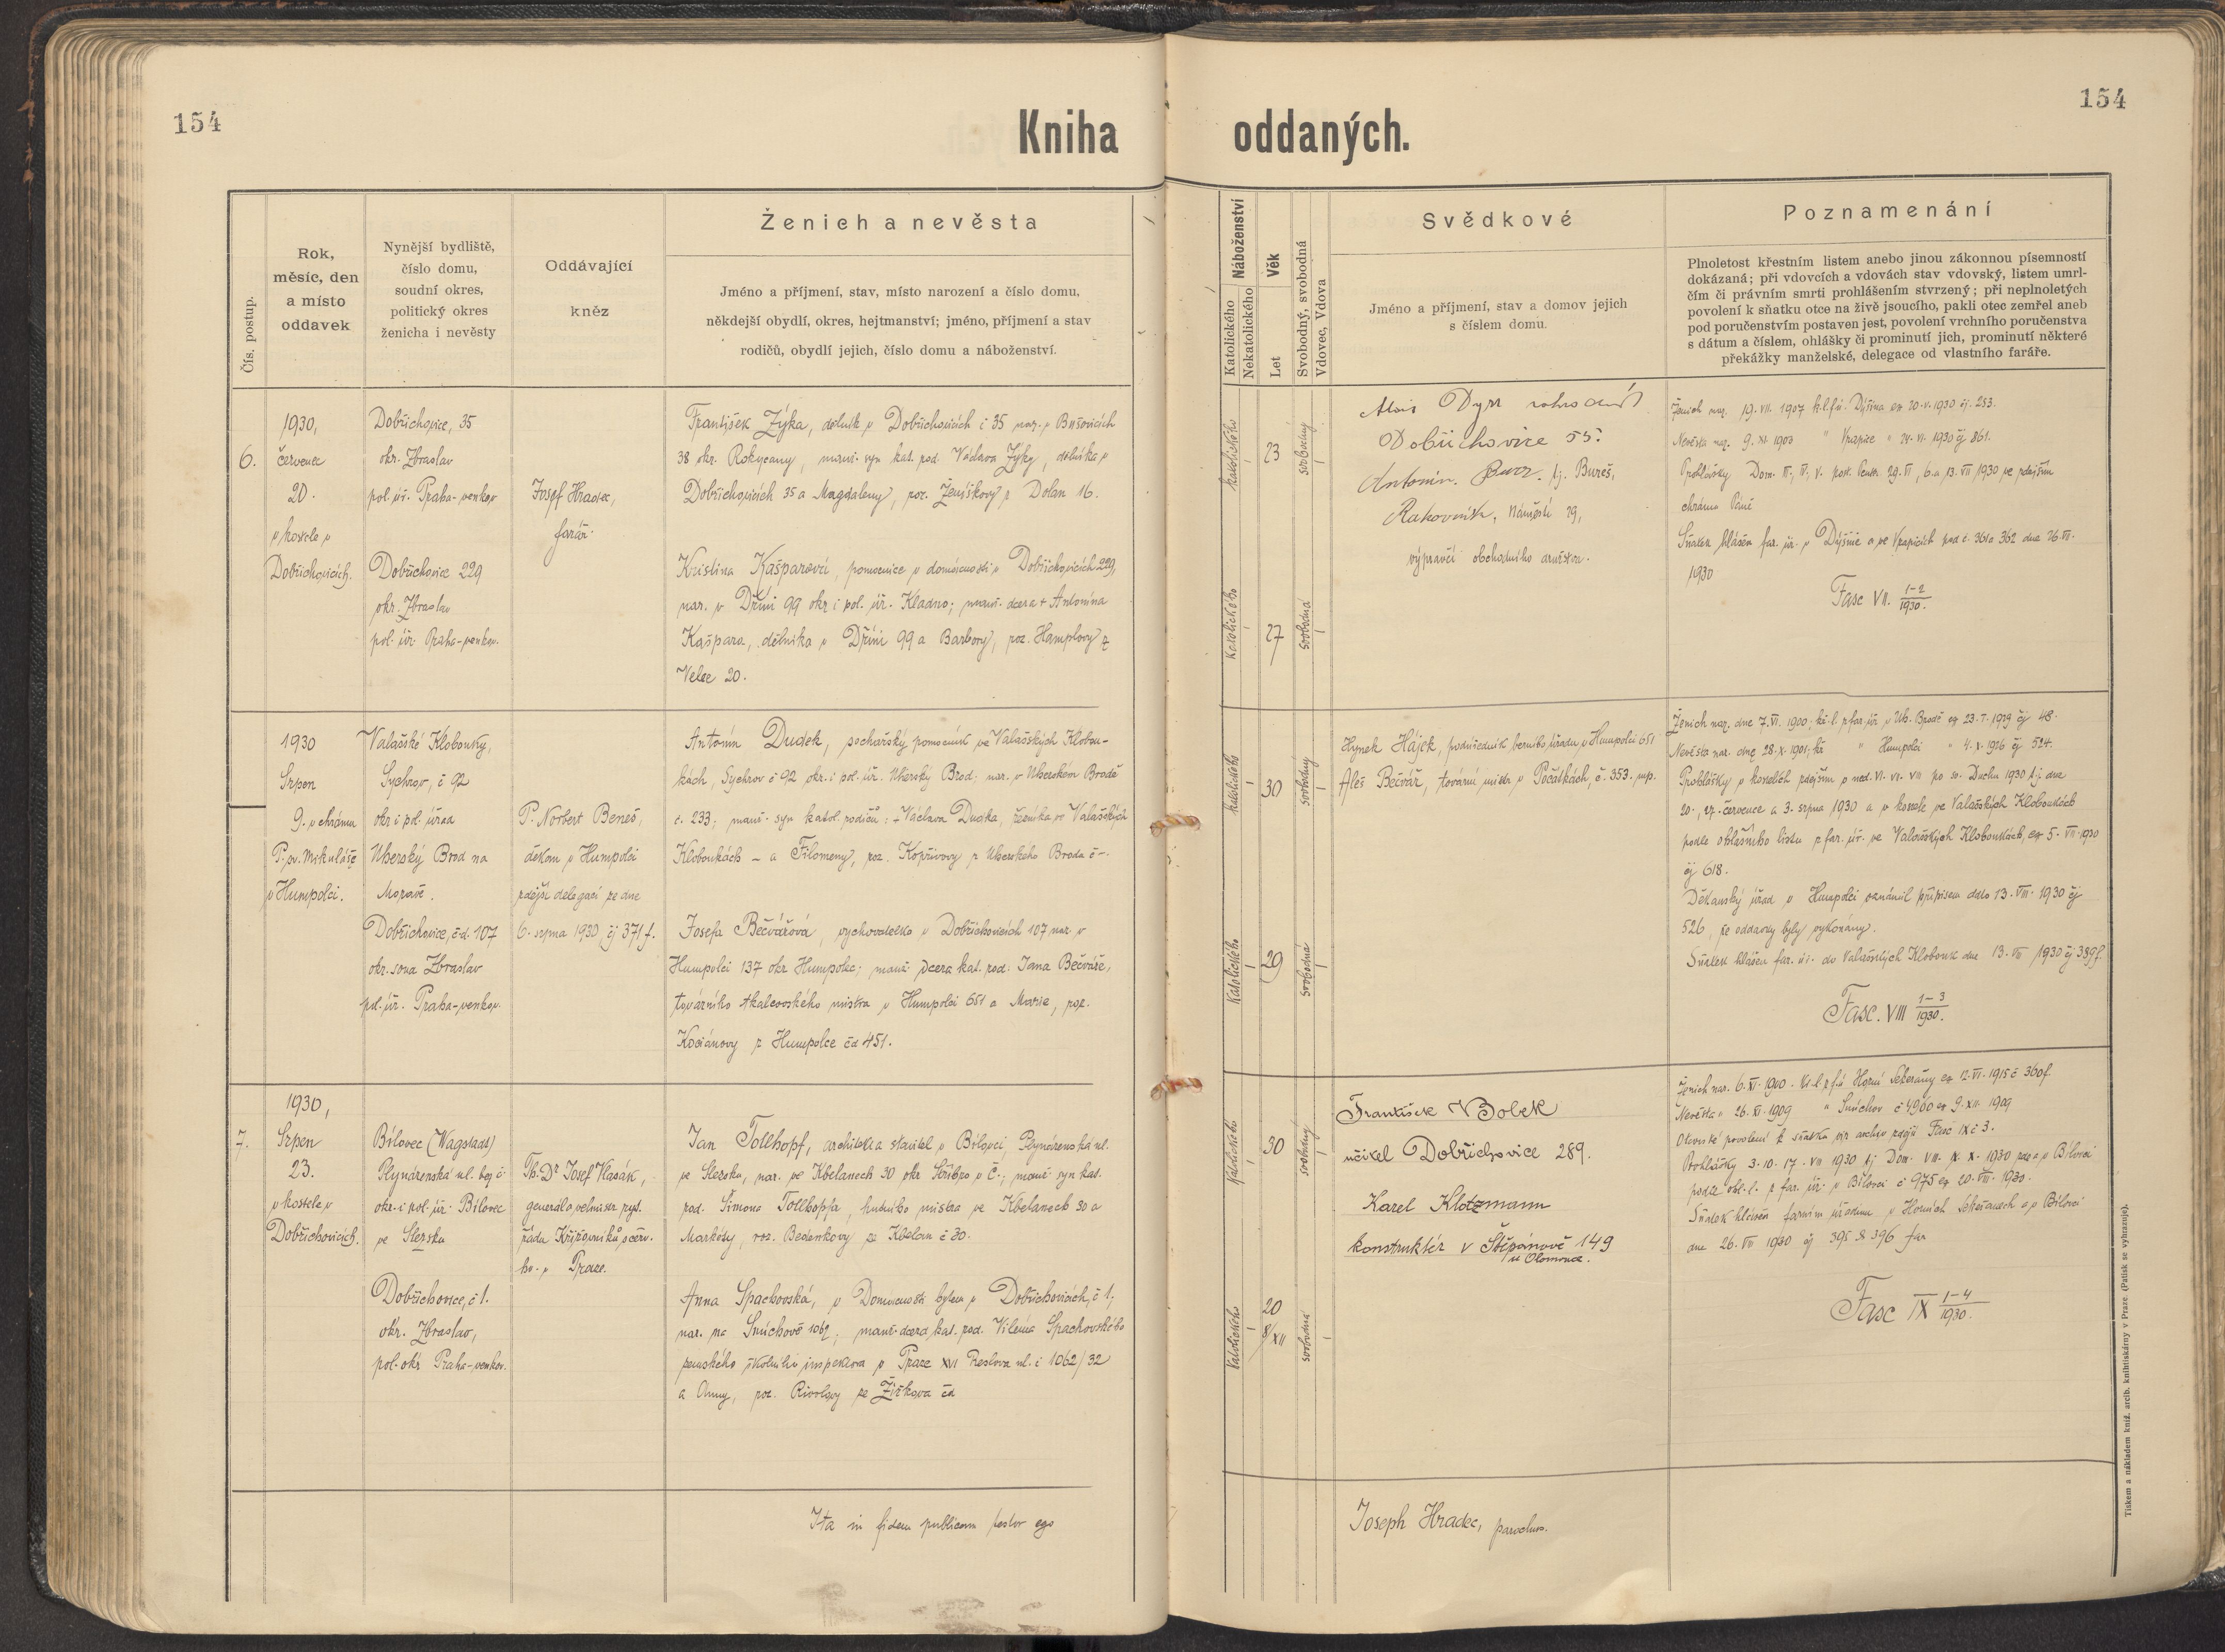 154
Kniha oddaných.
154
Čís. postup.
Rok,
měsíc, den
a místo
oddavek
Nynější bydliště,
číslo domu,
soudní okres,
politický okres
ženicha i nevěsty
Oddávající
kněz
Ženich a nevěsta
Jméno a příjmení, stav, místo narození a číslo domu,
někdejší obydlí, okres, hejtmanství; jméno, příjmení a stav
rodičů, obydlí jejich, číslo domu a náboženství.
Náboženství
Katolického
Nekatolického
Věk
Let
Svobodný, svobodná
Vdovec, Vdova
Svědkové
Jméno a příjmení, stav a domov jejich
s číslem domu.
Poznamenání
Plnoletost křestním listem anebo jinou zákonnou písemností
dokázaná; při vdovcích a vdovách stav vdovský, listem umrl-
čím či právním smrti prohlášením stvrzený; při neplnoletých
povolení k sňatku otce na živě jsoucího, pakli otec zemřel aneb
pod poručenstvím postaven jest, povolení vrchního poručenstva
s dátum a číslem, ohlášky či prominutí jich, prominutí některé
překážky manželské, delegace od vlastního faráře.
6.
1930,
červenec
20.
v kostele v
Dobřichovicích.
Dobřichovice, 35
okr. Zbraslav
pol. úř. Praha-venkov
Dobřichovice 229
okr. Zbraslav
pol. úř. Praha-venkov.
Josef Hradec,
farář.
František Zýka, dělník v Dobřichovicích č 35 nar. v Bušovicích
38 okr. Rokycany, manž. syn kat. rod. Václava Zýky, dělníka v
Dobřichovicích 35 a Magdaleny, roz. Ženíškovy z Dolan 16.
Kristina Kašparová, pomocnice v domácnosti v Dobřichovicích 229,
nar. v Dříni 99 okr i pol. úř. Kladno; manž. dcera + Antonína
Kašpara, dělníka v Dříni 99 a Barbory, roz. Hamplovy z
Velee 20.
katolického
23
svobodný
katolického
27
svobodná
Alois Dyrr
Dobřichovice 55.
Antonín Bureš. tj. Bureš,
Rakovník, Náměstí 29,
výpravčí obchodního družstva.
Ženich nar. 19. VII. 1907 k.l. f.ú. Dýšina ex 20. V. 1930 čj. 253.
Nevěsta nar. 9. XI. 1903 " Vrapice " 24. VI. 1930 čj 861.
Prohlášky Dom. III, IV, V. post Pent. 29. VI, 6. a 13. VII 1930 ve zdejším
chrámu Páně
Sňatek hlášen far. úř. v Dýšině a ve Vrapicích pod č. 361 a 362 dne 26. VII.
1930
Fasc VII. 1-2/1930.
1930
Srpen
9. v chrámu
P. sv. Mikuláše
v Humpolci.
Valašské Klobouky,
Sychrov, č 92
okr i pol. úřad
Uherský Brod na
Moravě.
Dobřichovice, č.d. 107
okr. soud Zbraslav
pol. úř. Praha-venkov.
P. Norbert Beneš,
děkan v Humpolci
zdejší delegací ze dne
6. srpna 1930 čj 371 f.
Antonín Dudek, sochařský pomocník ve Valašských Klobou-
kách, Sychrov č 92 okr. i pol. úř. Uherský Brod; nar. v Uherském Brodě
č. 233; manž. syn katol. rodičů: + Václava Dudka, řezníka ve Valašských
Kloboukách - a Filomeny, roz. Kopřivovy z Uherského Brodu č -.
Josefa Bečvářová, vychovatelka v Dobřichovicích 107 nar. v
Humpolci 137 okr Humpolec; manž. dcera kat. rod. Jana Bečváře,
továrního tkalcovského mistra v Humpolci 651 a Marie, roz.
Kociánovy z Humpolce čd 451.
katolického
30
svobodný
katolického
29
svobodná
Hynek Hájek, podúředník berního úřadu v Humpolci 651
Aleš Bečvář, tovární mistr v Počátkách, č. 353. mp.
Ženich nar. dne 7. VI. 1900; kř. l. z far. úř v Uh. Brodě ex 23. I. 1929 čj 48.
Nevěsta nar. dne 28. X. 1901, kř " Humpolci " 4. X. 1926 čj 524.
Prohlášky v kostelích zdejším v ned. VI. VII. VIII po sv. Duchu 1930 tj dne
20., 27. července a 3. srpna 1930 a v kostele ve Valašských Kloboukách
podle ohlašního listu z far. úř. ve Valašských Kloboukách, ex 5. VIII. 1930
čj 618.
Děkanský úřad v Humpolci oznámil přípisem ddto 13. VIII. 1930 čj
526, že oddavky byly vykonány.
Sňatek hlášen far. úř. do Valašských Klobouk dne 13. VIII 1930 čj 389 f.
Fasc. VIII 1-3/1930.
7.
1930,
Srpen
23.
v kostele v
Dobřichovicích.
Bílovec (Wagstadt)
Plynárenská ul. bez č
okr. i pol. úř. Bílovec
ve Slezsku
Dobřichovice, č 1.
okr. Zbraslav,
pol. okr Praha-venkov.
Th. Dr Josef Vlasák,
generál a velmistr ryt.
řádu Křižovníků s červ.
hv. v Praze.
Jan Tollhopf, architekt a stavitel v Bílovci Plynárenská ul.
ve Slezsku, nar. ve Kbelanech 30 okr Stříbro v Č.; manž syn kat.
rod. Šimona Tollhopfa, hutního mistra ve Kbelanech 30 a
Markéty, roz. Bedenkovy ze Kbelan č 30.
Anna Spachovská, v Domácnosti bytem v Dobřichovicích, č 1;
nar. na Smíchově 1062; manž. dcera kat. rod. Viléma Spachovského
zemského školního inspektora v Praze XVI Resslova ul. č 1062/32
a Anny, roz. Rivolovy ze Žižkova čd
katolického
30
svobodný
katolického
20
8/XII
svobodná
František Bolek
učitel Dobřichovice 289.
Karel Klotzmann
konstruktér v Štěpánově 149
u Olomouce.
Ženich nar. 6. XI. 1900. kř. l. z f.ú Horní Sekeřany ex 12. VI. 1915 č 360 f
Nevěsta " 26. XI. 1909 " Smíchov č 4960 ex 9. XII. 1909
Otcovské povolení k sňatku viz archiv zdejší Fasc IX č 3.
Prohlášky 3. 10. 17. VIII 1930 tj Dom. VIII. IX. X. 1930 zde a v Bílovci
podle ohl. l. z far. úř. v Bílovci č 975 ex 20. VIII. 1930.
Sňatek hlášen farním úřadům v Horních Sekeřanech a v Bílovci
dne 26. VIII 1930 čj 395 & 396 far
Fasc IX 1-4/1930.
Ita in fidem publicam testor ego
Joseph Hradec, parochus.
Tiskem a nákladem kníž. arcib. knihtiskárny v Praze. (Patisk se vyhrazuje).